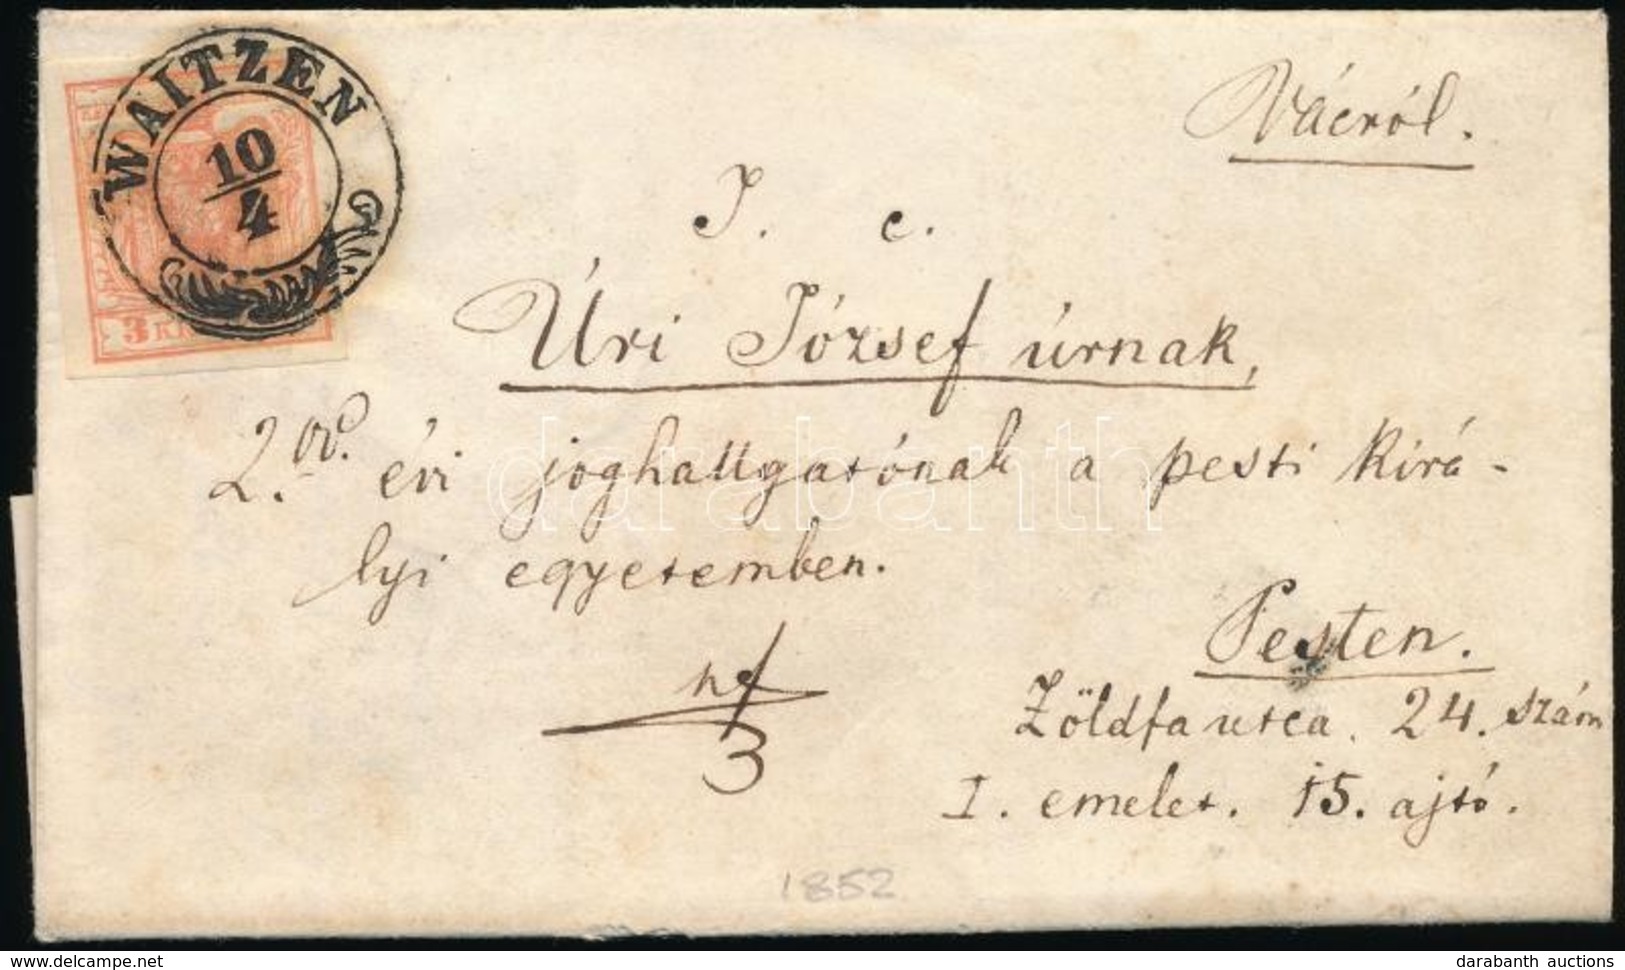 WAITZEN
10
4
3 KR
Vácról.
I. c.
Úri József úrnak,
2. évi joghallgatónak a pesti kirá-
lyi egyetemben.
Pesten.
3
Zöldfa utca. 24. szám
I. emelet. 15. ajtó.
1852
darabanth
delcampe.net
darabanth auctions